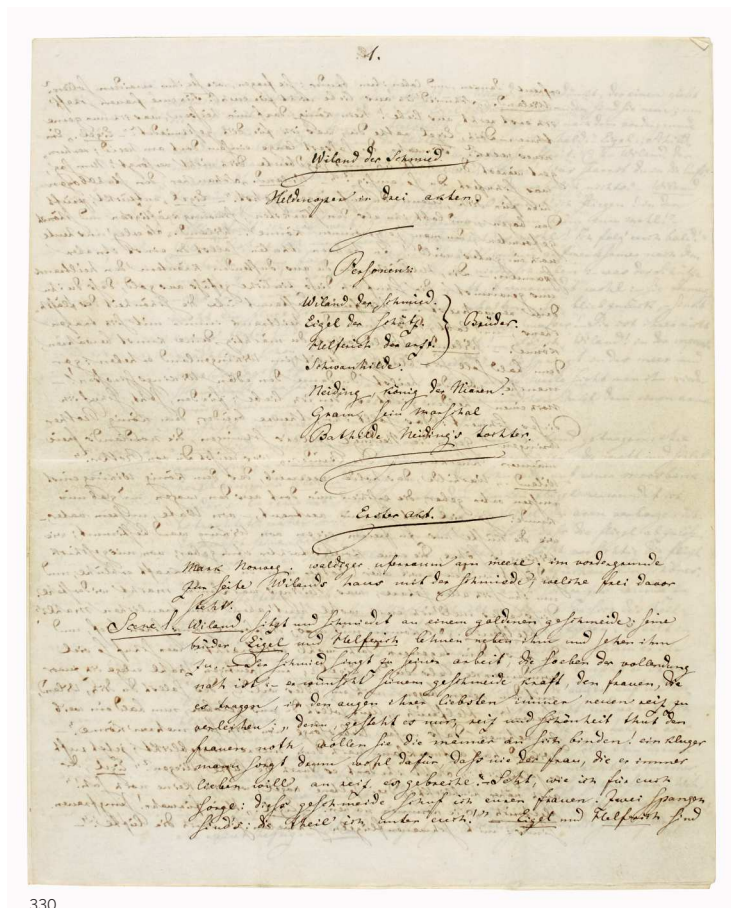 1.
Wiland der Schmied.
Heldenoper in drei akten.
Personen:
Wiland der Schmied.
Eigel der Schütz.
Helferich der arzt.
Brüder.
Schwanhilde.
Neiding, König der Niaren.
Gram, sein marschal
Bathilde, Neiding's tochter.
Erster akt.
Mark Norweg: waldiger uferraum am meere. im vordergrunde
zur seite Wilands haus mit der schmiede, welche frei davor
steht.
Scene 1. Wiland sitzt und schmiedet an einem goldenen geschmeide; seine
brüder, Eigel und Helferich lehnen neben ihm und sehen ihm
zu. – Der schmied singt zu seiner arbeit, die soeben der vollendung
nah ist: – er wünscht seinem geschmeide kraft, den frauen, die
es tragen, in den augen ihrer liebsten immer neuen reiz zu
verleihen: „denn, gesteht es nur, reiz und schönheit thut den
frauen noth, wollen sie die männer an sich binden! ein kluger
mann sorgt drum wohl dafür, dass nie der frau, die er immer
lieben will, an reiz es gebreche. Seht, wie ich für euch
sorge: diess geschmeide schuf ich euren frauen! Zwei spangen
sind's: die theil' ich unter euch!" – Eigel und Helferich sind
330